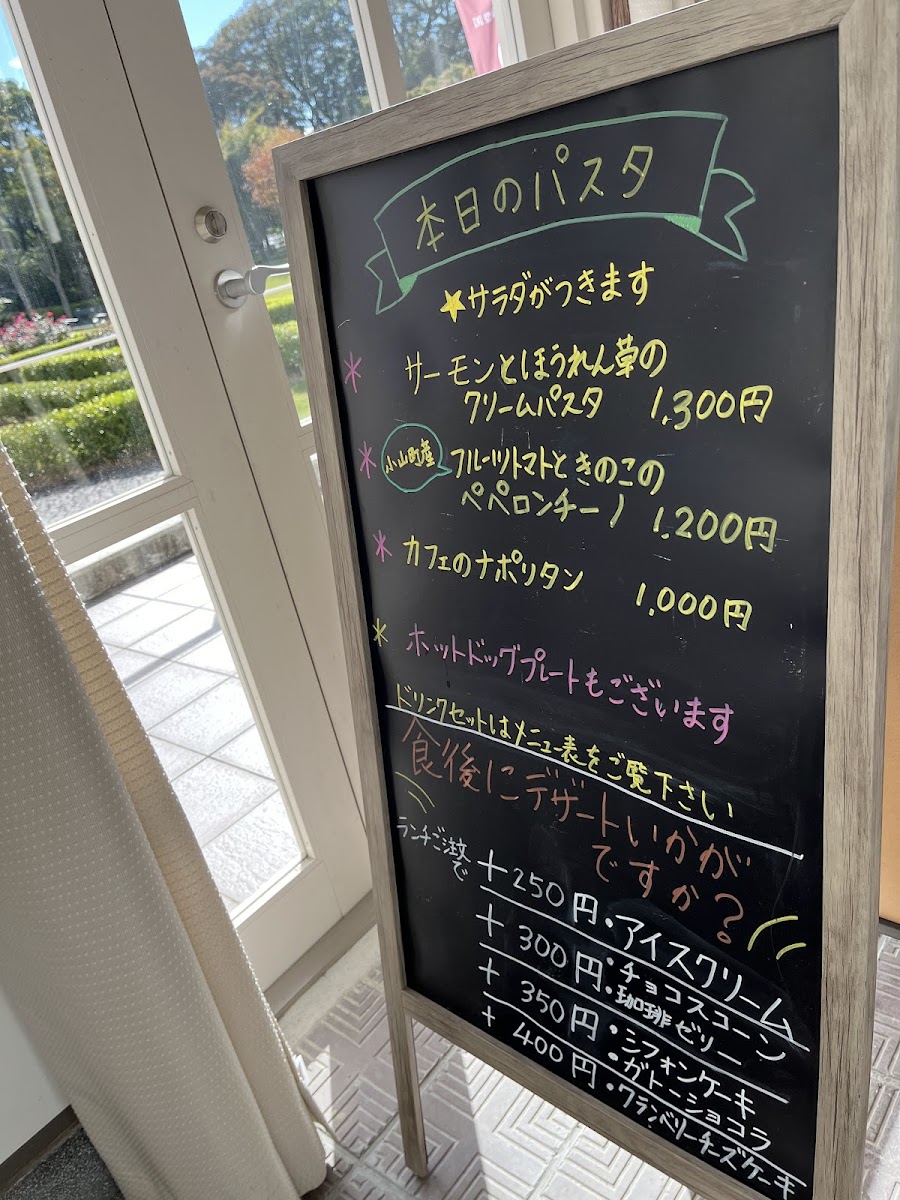 本日のパスタ
★サラダがつきます
* サーモンとほうれん草の
クリームパスタ 1,300円
* 小山町産 フルーツトマトときのこの
ペペロンチーノ 1,200円
* カフェのナポリタン 1,000円
* ホットドッグプレートもございます
ドリンクセットはメニュー表をご覧下さい
食後にデザートいかが
ですか?
ランチご注文
で
+250円・アイスクリーム
+300円・チョコスコーン
・珈琲ゼリー
+350円・シフォンケーキ
・ガトーショコラ
+400円・クランベリーチーズケーキ